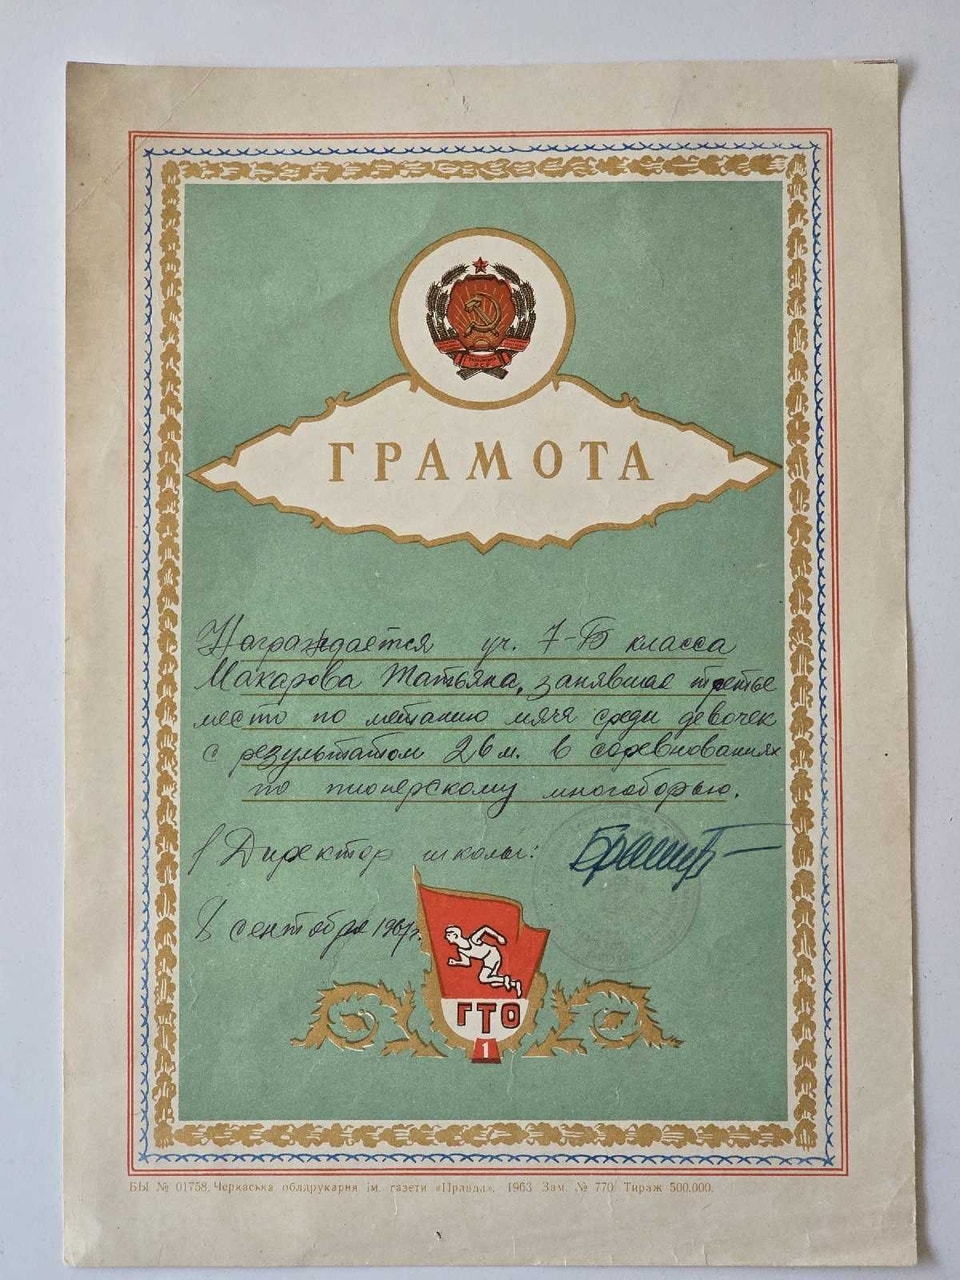 ГРАМОТА
Награждается уч. 7-Б класса
Макарова Татьяна, занявшая третье
место по метанию мяча среди девочек
с результатом 26 м. в соревнованиях
по пионерскому многоборью.
Директор школы:
8 сентября
ГТО
1
БЫ № 01758. Черкаська облдрукарня ім. газети «Правда». 1963 Зам. № 770 Тираж 500.000.